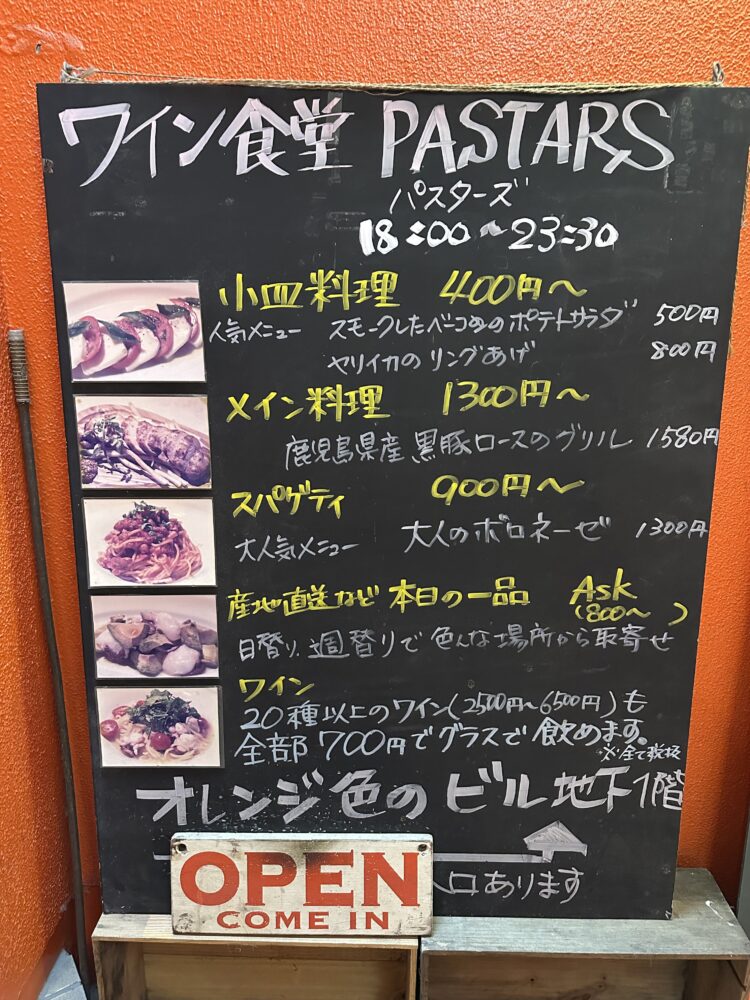 ワイン食堂 PASTARS
パスターズ
18:00〜23:30
小皿料理 400円〜
人気メニュー スモークしたベーコンのポテトサラダ 500円
ヤリイカのリングあげ 800円
メイン料理 1300円〜
鹿児島県産黒豚ロースのグリル 1580円
スパゲティ 900円〜
大人気メニュー 大人のボロネーゼ 1300円
産地直送など 本日の一品 Ask
(800〜 )
日替り、週替りで色んな場所から取寄せ
ワイン
20種以上のワイン(2500円〜6500円)も
全部700円でグラスで飲めます。
※全て税抜
オレンジ色のビル地下1階
口あります
OPEN
COME IN